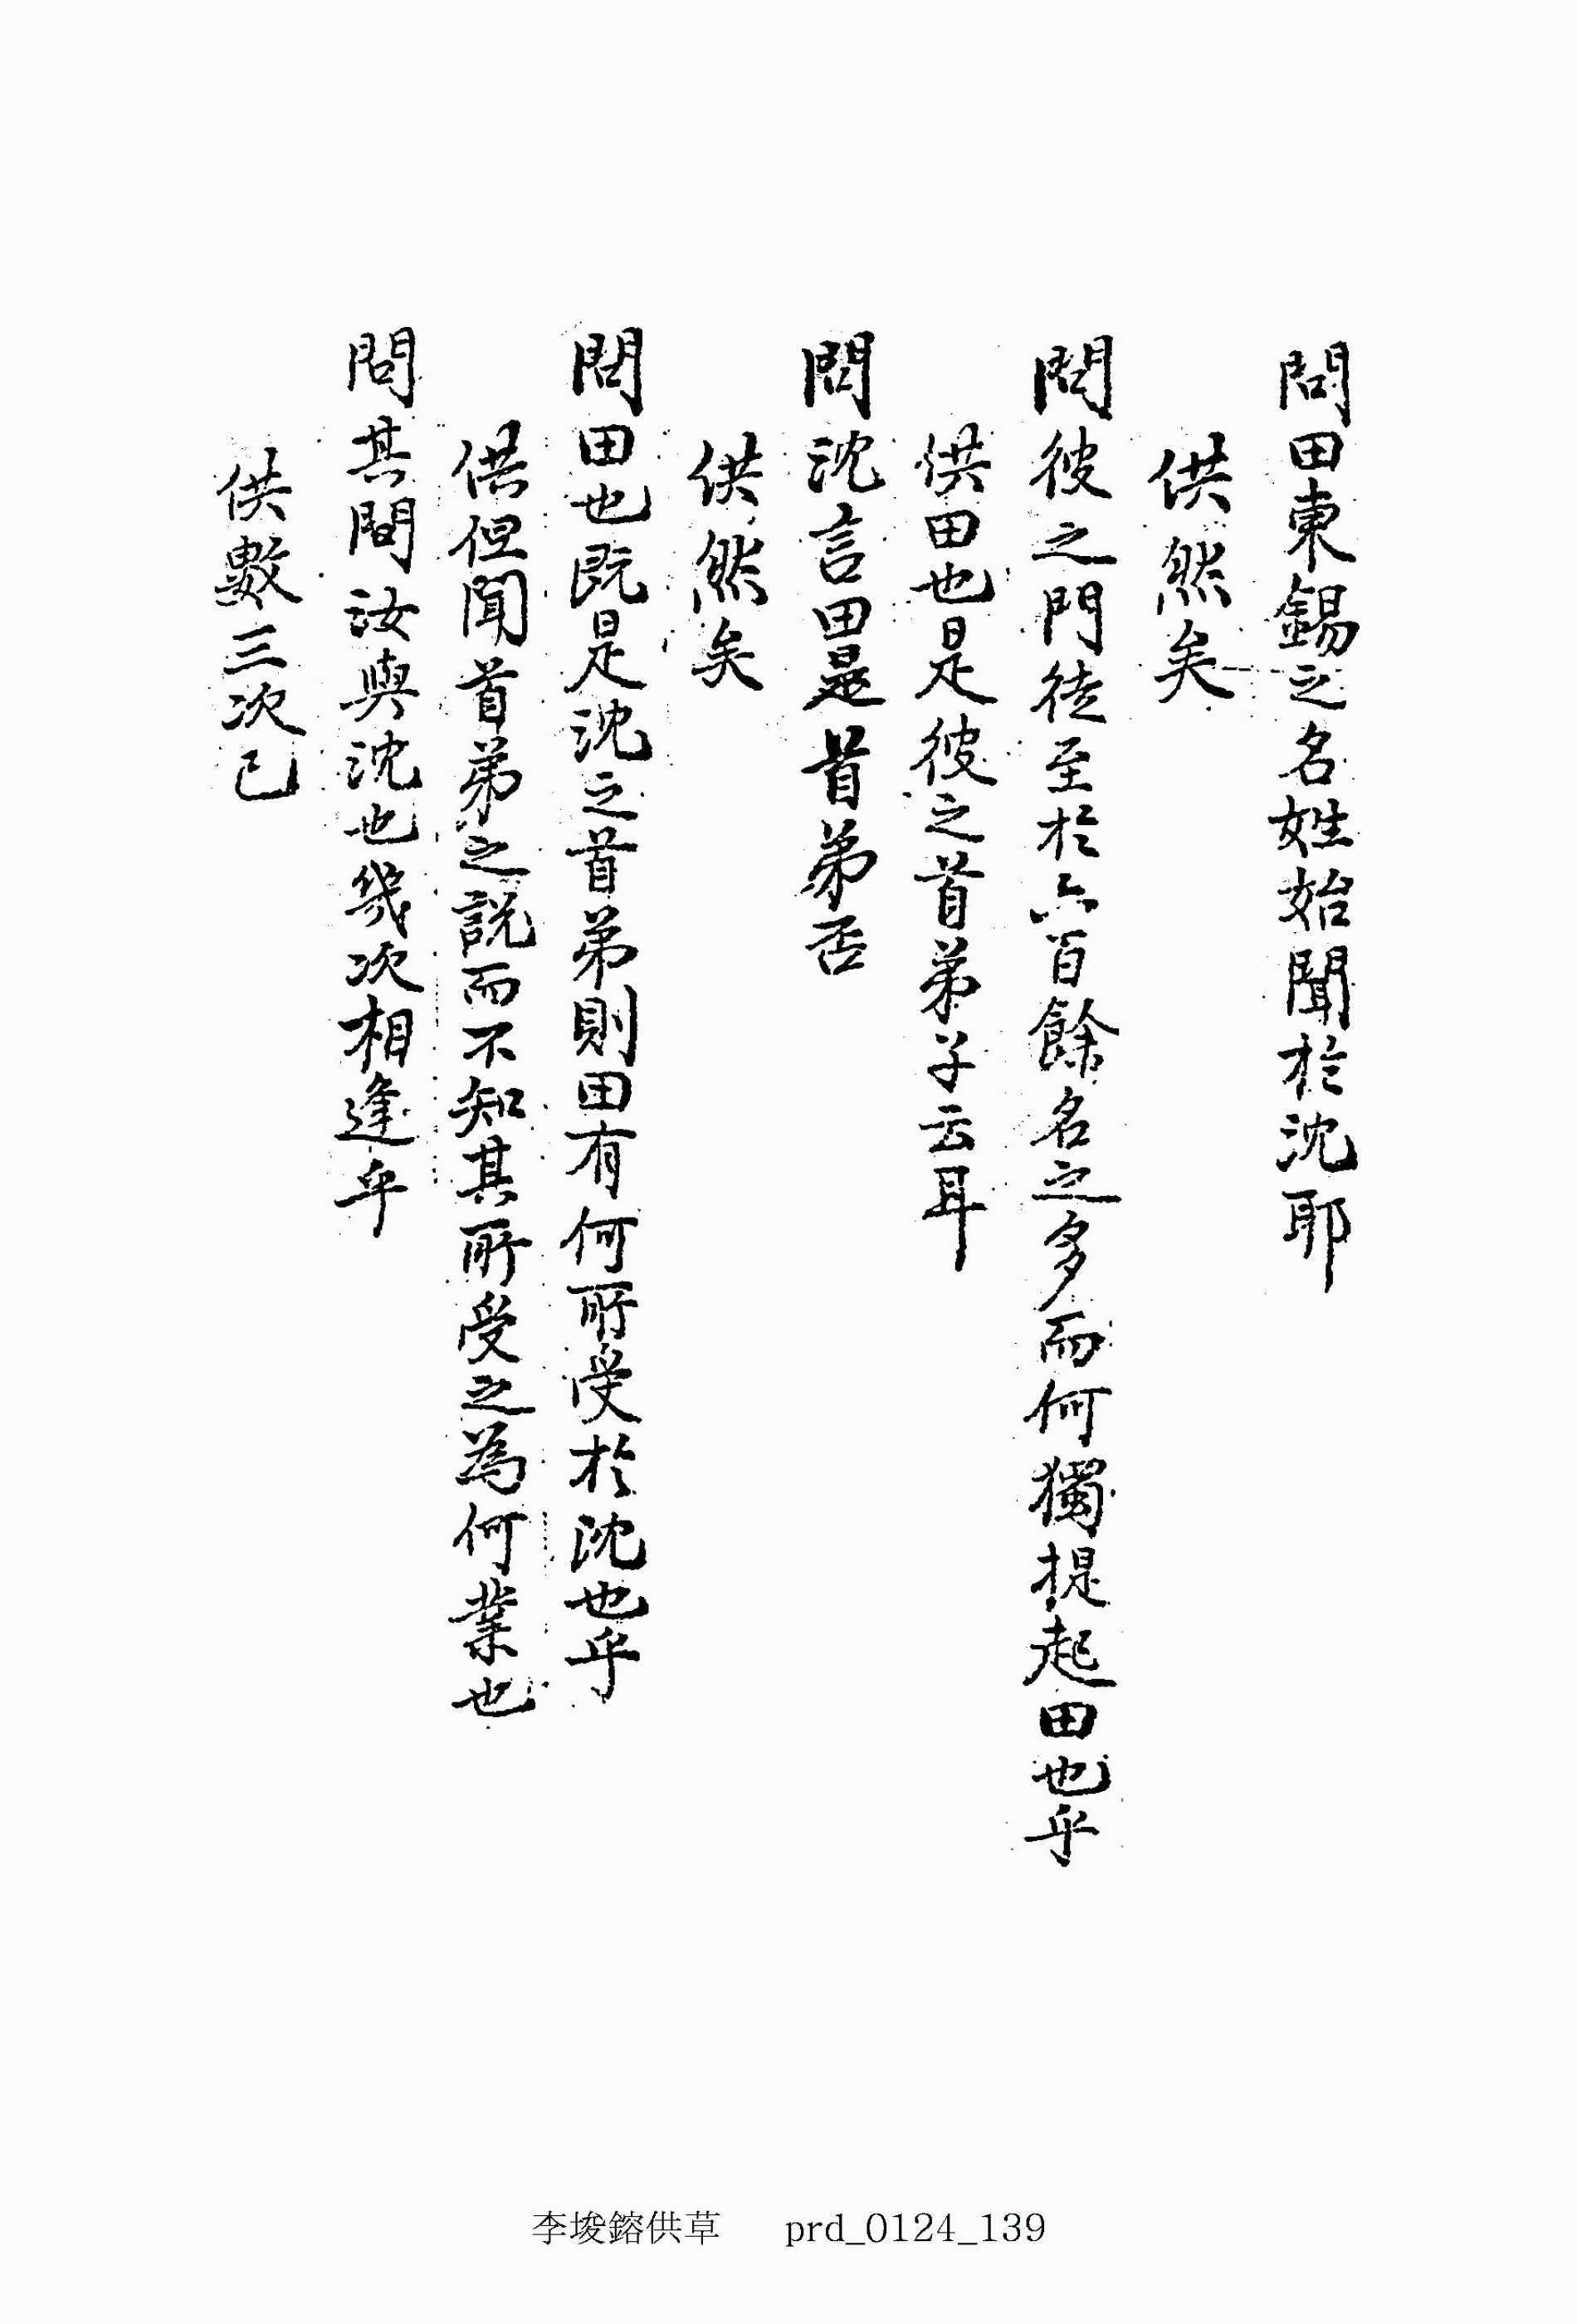 問田東錫之名姓始聞於沈耶
供然矣
問彼之門徒至於六百餘名之多而何獨提起田也乎
供田也是彼之首弟子云耳
問沈言田是首弟否
供然矣
問田也既是沈之首弟則田有何所受於沈也乎
供但聞首弟之説而不知其所受之為何業也
問其間汝與沈也幾次相逢乎
供數三次已
李埈鎔供草 prd_0124_139